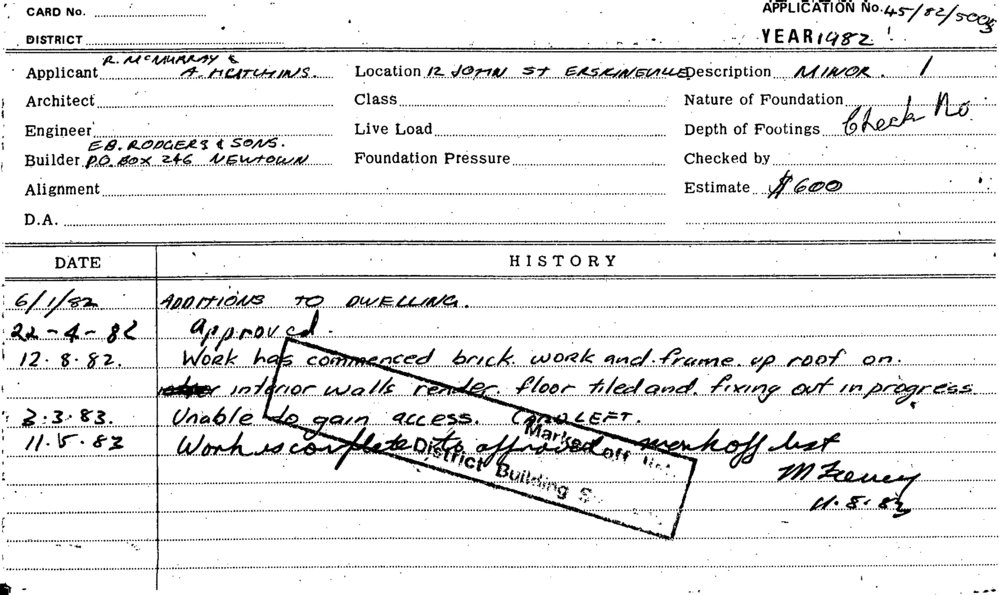 CARD No.
APPLICATION No. 45/82/5005
DISTRICT
YEAR 1982
R. McMURRAY &
Applicant A. HUTCHINS. Location 12 JOHN ST ERSKINEVILLE Description MINOR. 1
Architect Class Nature of Foundation
Engineer Live Load Depth of Footings Check No
E.B. RODGERS & SONS.
Builder P.O. BOX 246 NEWTOWN Foundation Pressure Checked by
Alignment Estimate $600
D.A.
DATE HISTORY
6/1/82 ADDITIONS TO DWELLING.
22-4-82 Approved.
12.8.82. Work has commenced brick work and frame up roof on.
interior walls render floor tiled and fixing out in progress
3.3.83. Unable to gain access. CARD LEFT.
11.5.83 Work is complete to approved mark off list
Marked off list
District Building
M Feeney
11.8.83